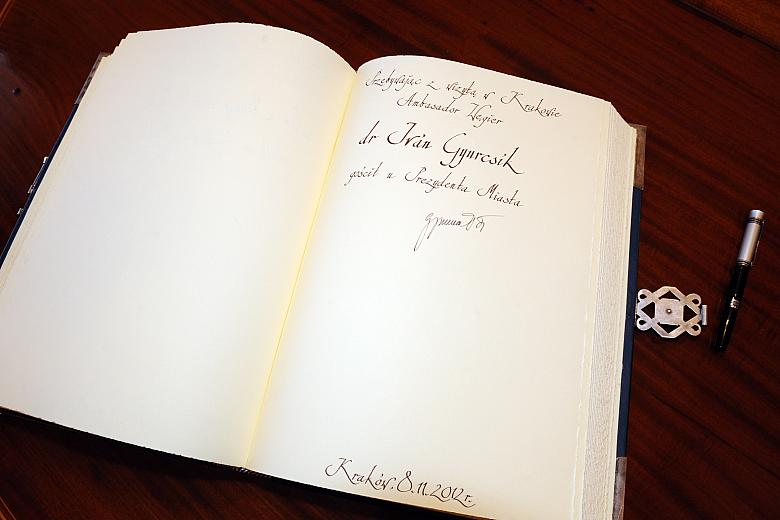 Przebywając z wizytą w Krakowie
Ambasador Węgier
dr Iván Gyurcsik
gościł u Prezydenta Miasta
Kraków, 8.11.2012r.